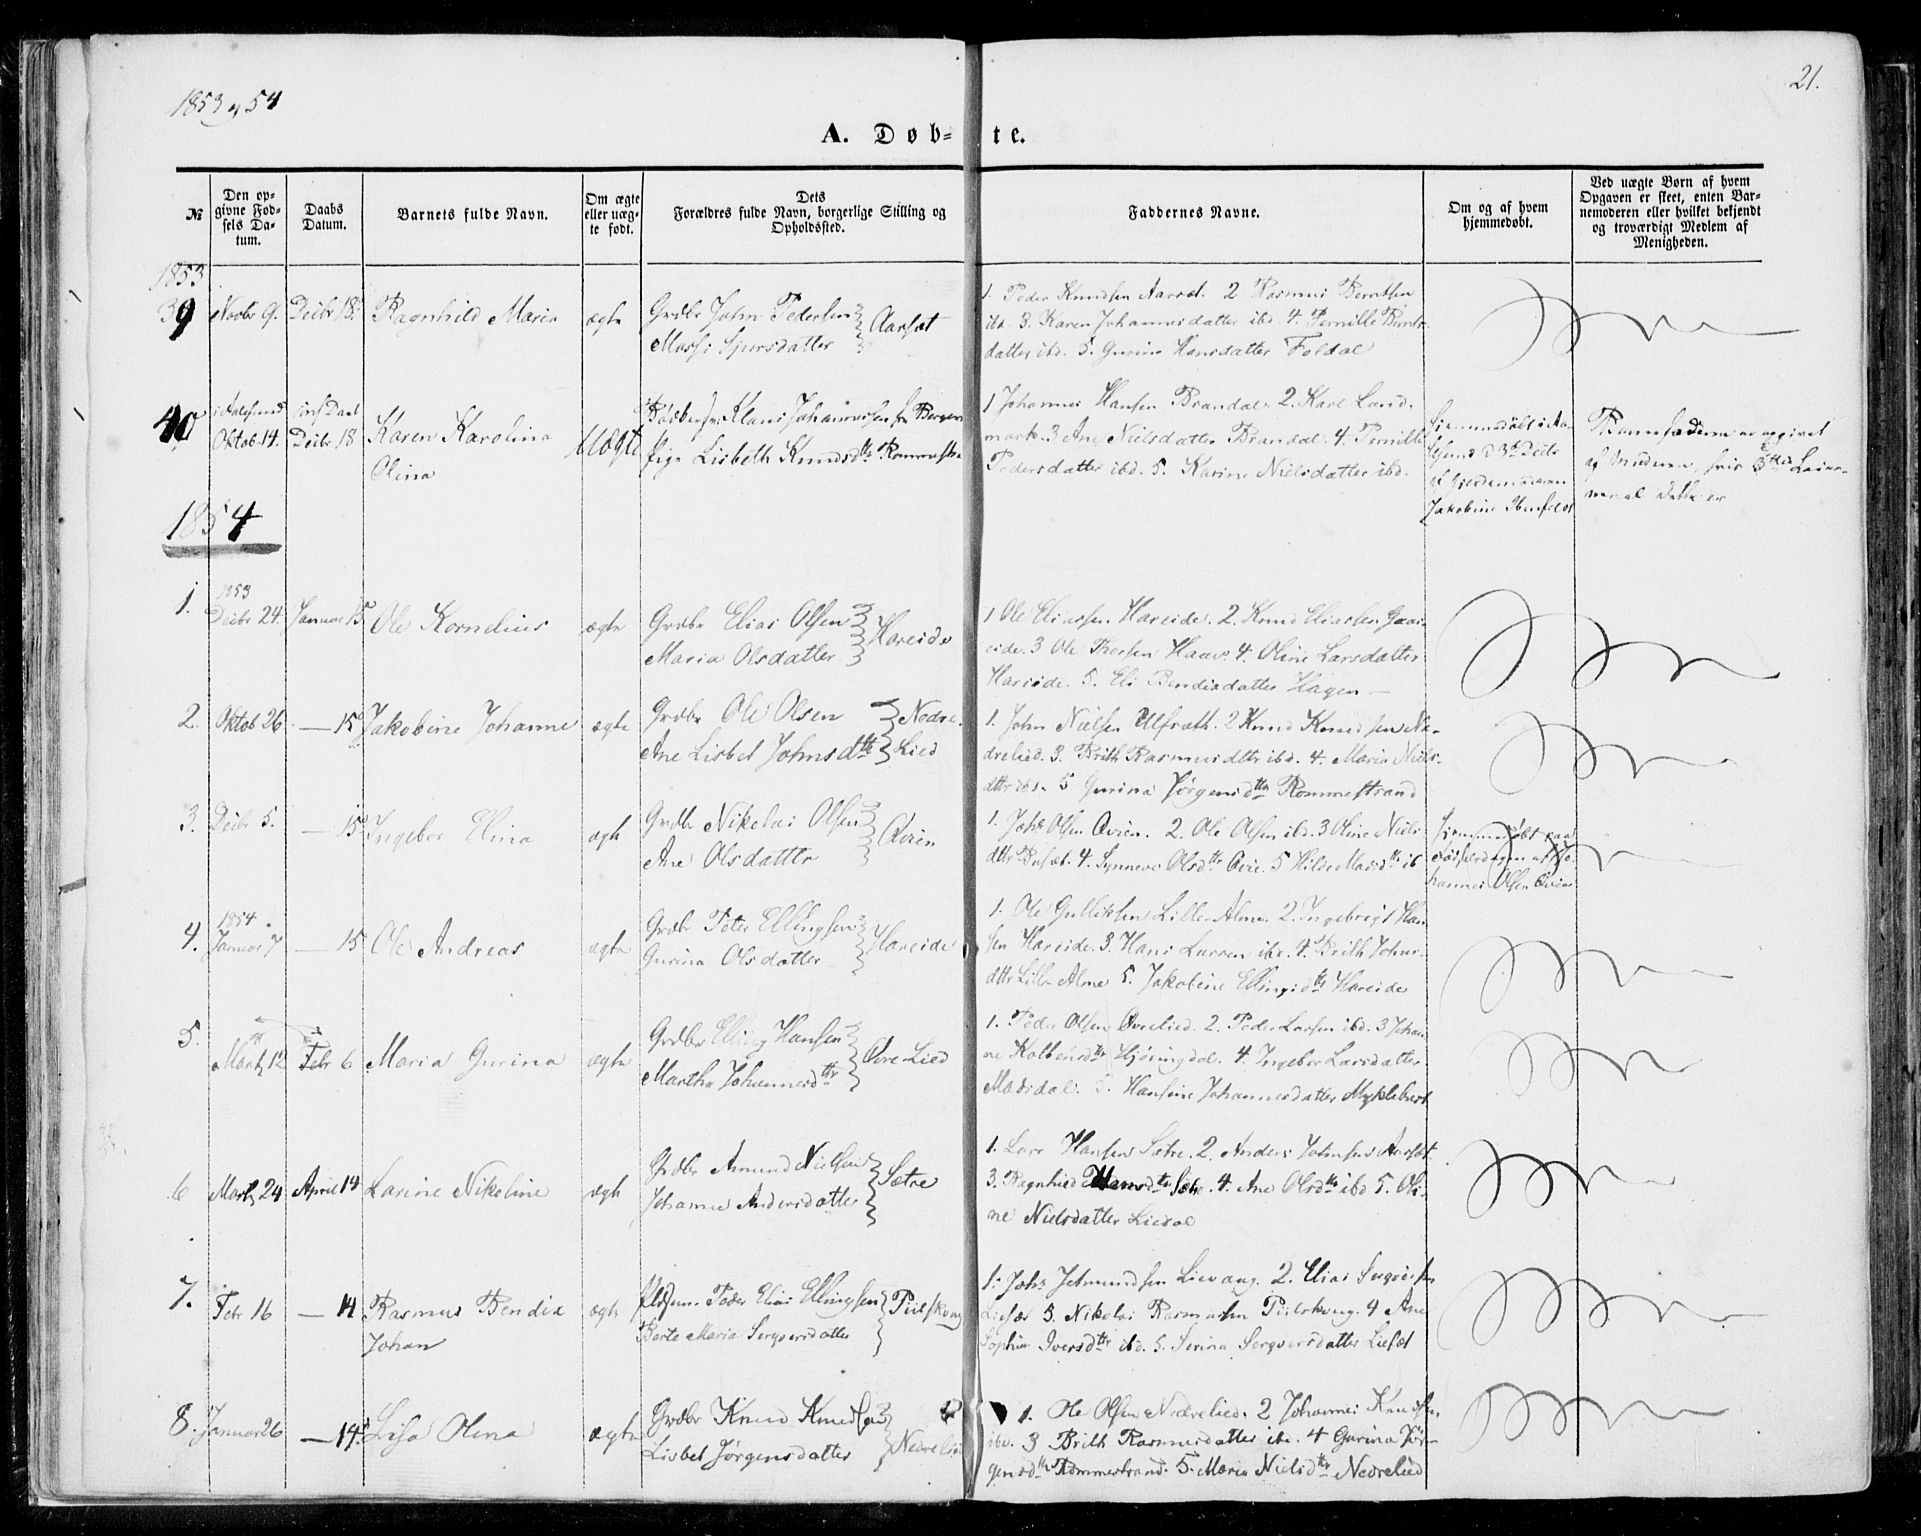 1853 og 54
21.
A. Døb- te.
№
Den op-
givne Fød-
sels Da-
tum.
Daabs
Datum.
Barnets fulde Navn.
Om ægte
eller uæg-
te født.
Dets
Forældres fulde Navn, borgerlige Stilling og
Opholdssted.
Faddernes Navne.
Om og af hvem
hjemmedøbt.
Ved uægte Børn af hvem
Opgaven er skeet, enten Bar-
nemoderen eller hvilket bekjendt
og troværdigt Medlem af
Menigheden.
1853
39 Novbr 9. Decbr 18. Ragnhild Maria ægte
Grdbr John Pedersen
Massi Sjursdatter
Aarsæt
1. Peder Knudsen Aarsæt. 2 Rasmus Berntsen
ibd. 3. Karen Johannesdatter ibd. 4. Pernille Bernts-
datter ibd. 5. Gurine Hansdatter Foldal
40 i Aalesund
Oktob. 14. Decbr 18 Karen Karolina
Olina
Uægte
Klaus Johannessen fra Bergen
Pige Lisbeth Knudsdtr Rommestra
1 Johannes Hansen Brandal. 2. Karl Land-
mark. 3 Ane Nielsdatter Brandal. 4. Pernille
Pedersdatter ibd. 5. Karine Nielsdatter ibd.
Hjemmedøbt i Aa-
lesund d 3de Decbr
af Gjordemoderen
Jakobine
Barnefaderen er opgivet
af Moderen, hvis 3die Leier-
maal dette er
1854
1. 1853
Decbr 24. Januar 15 Ole Kornelius ægte
Grdbr Elias Olsen
Maria Olsdatter
Hareide
1 Ole Eliassen Hareide. 2. Knud Eliassen Gaas-
eide. 3 Ole Thorsen Haav. 4. Oline Larsdatter
Hareide. 5. Eli Bendixdatter Hagen —
2. Oktob 26 — 15 Jakobine Johanne ægte
Grdbr Ole Olsen
Ane Lisbet Johnsdttr
Nedre
Lied
1. John Nielsen Ulfsæth. 2 Knud Knudsen Ne-
drelied. 3. Brith Rasmusdttr ibd. 4. Maria Niels-
dttr ibd. 5 Gurina Jørgensdttr Rommestrand
3. Decbr 5. — 15 Ingebor Elina ægte
Grdbr Nikolai Olsen
Ane Olsdatter
Qvien
1. Johs Olsen Qvien. 2. Ole Olsen ibd. 3 Oline Niels-
dttr 4. Synneve Olsdttr Qvie. 5 Hilde Madsdttr ib
Hjemmedøbt paa
Fødselsdagen af Jo-
hannes Olsen Qvien
4. 1854
Januar 7 — 15 Ole Andreas ægte
Grdbr Peter Ellingsen
Gurina Olsdatter
Hareide
1. Ole Gulliksen Lille-Alme. 2. Ingebrigt Han-
sen Hareide. 3. Hans Larsen ibd. 4. Brith Johns-
dttr Lille-Alme 5. Jakobine Ellingsdttr Hareide
5. Marts 12 Febr 6 Maria Gurina ægte
Grdbr Elling Hansen
Martha Johannesdttr
Øvre-Lied
1. Peder Olsen Øvrelied. 2. Peder Larsen ibd. 3 Johan-
ne Kolbensdttr Hjøringdal. 4. Ingebor Larsdatter
Masdal. 5. Hansine Johannesdatter Myklebust
6 Marts 24 April 14 Larine Nikoline ægte
Grdbr Amund Nielsen
Johanne Andersdatter
Sætre
1. Lars Hansen Sætre. 2. Anders Johnsen Aarsæt.
3. Ragnhild Hansdttr Sætre. 4. Ane Olsdttr ibd 5. Oli-
ne Nielsdatter Liedal
7. Febr 16 — 14 Rasmus Bendix
Johan
ægte
Peder Elias Ellingsen
Berte Maria Sergversdatter
Piilskoug
1. Johs Jetmundsen 2. Elias
3. Nikolai Rasmussen Piilskoug. 4 Ane
Sophie Iversdttr ibd. 5. Serina Sergversdatter
8. Januar 26 — 14. Lisa Olena ægte
Grdbr Knud Knudsen
Lisbet Jørgensdatter
Nedrelied
1. Ole Olsen Nedrelied. 2 Johannes Knudsen
ibd. 3 Brith Rasmusdatter ibd. 4 Gurina Jør-
gensdttr Rommestrand. 5. Maria Nielsdttr Nedrelied